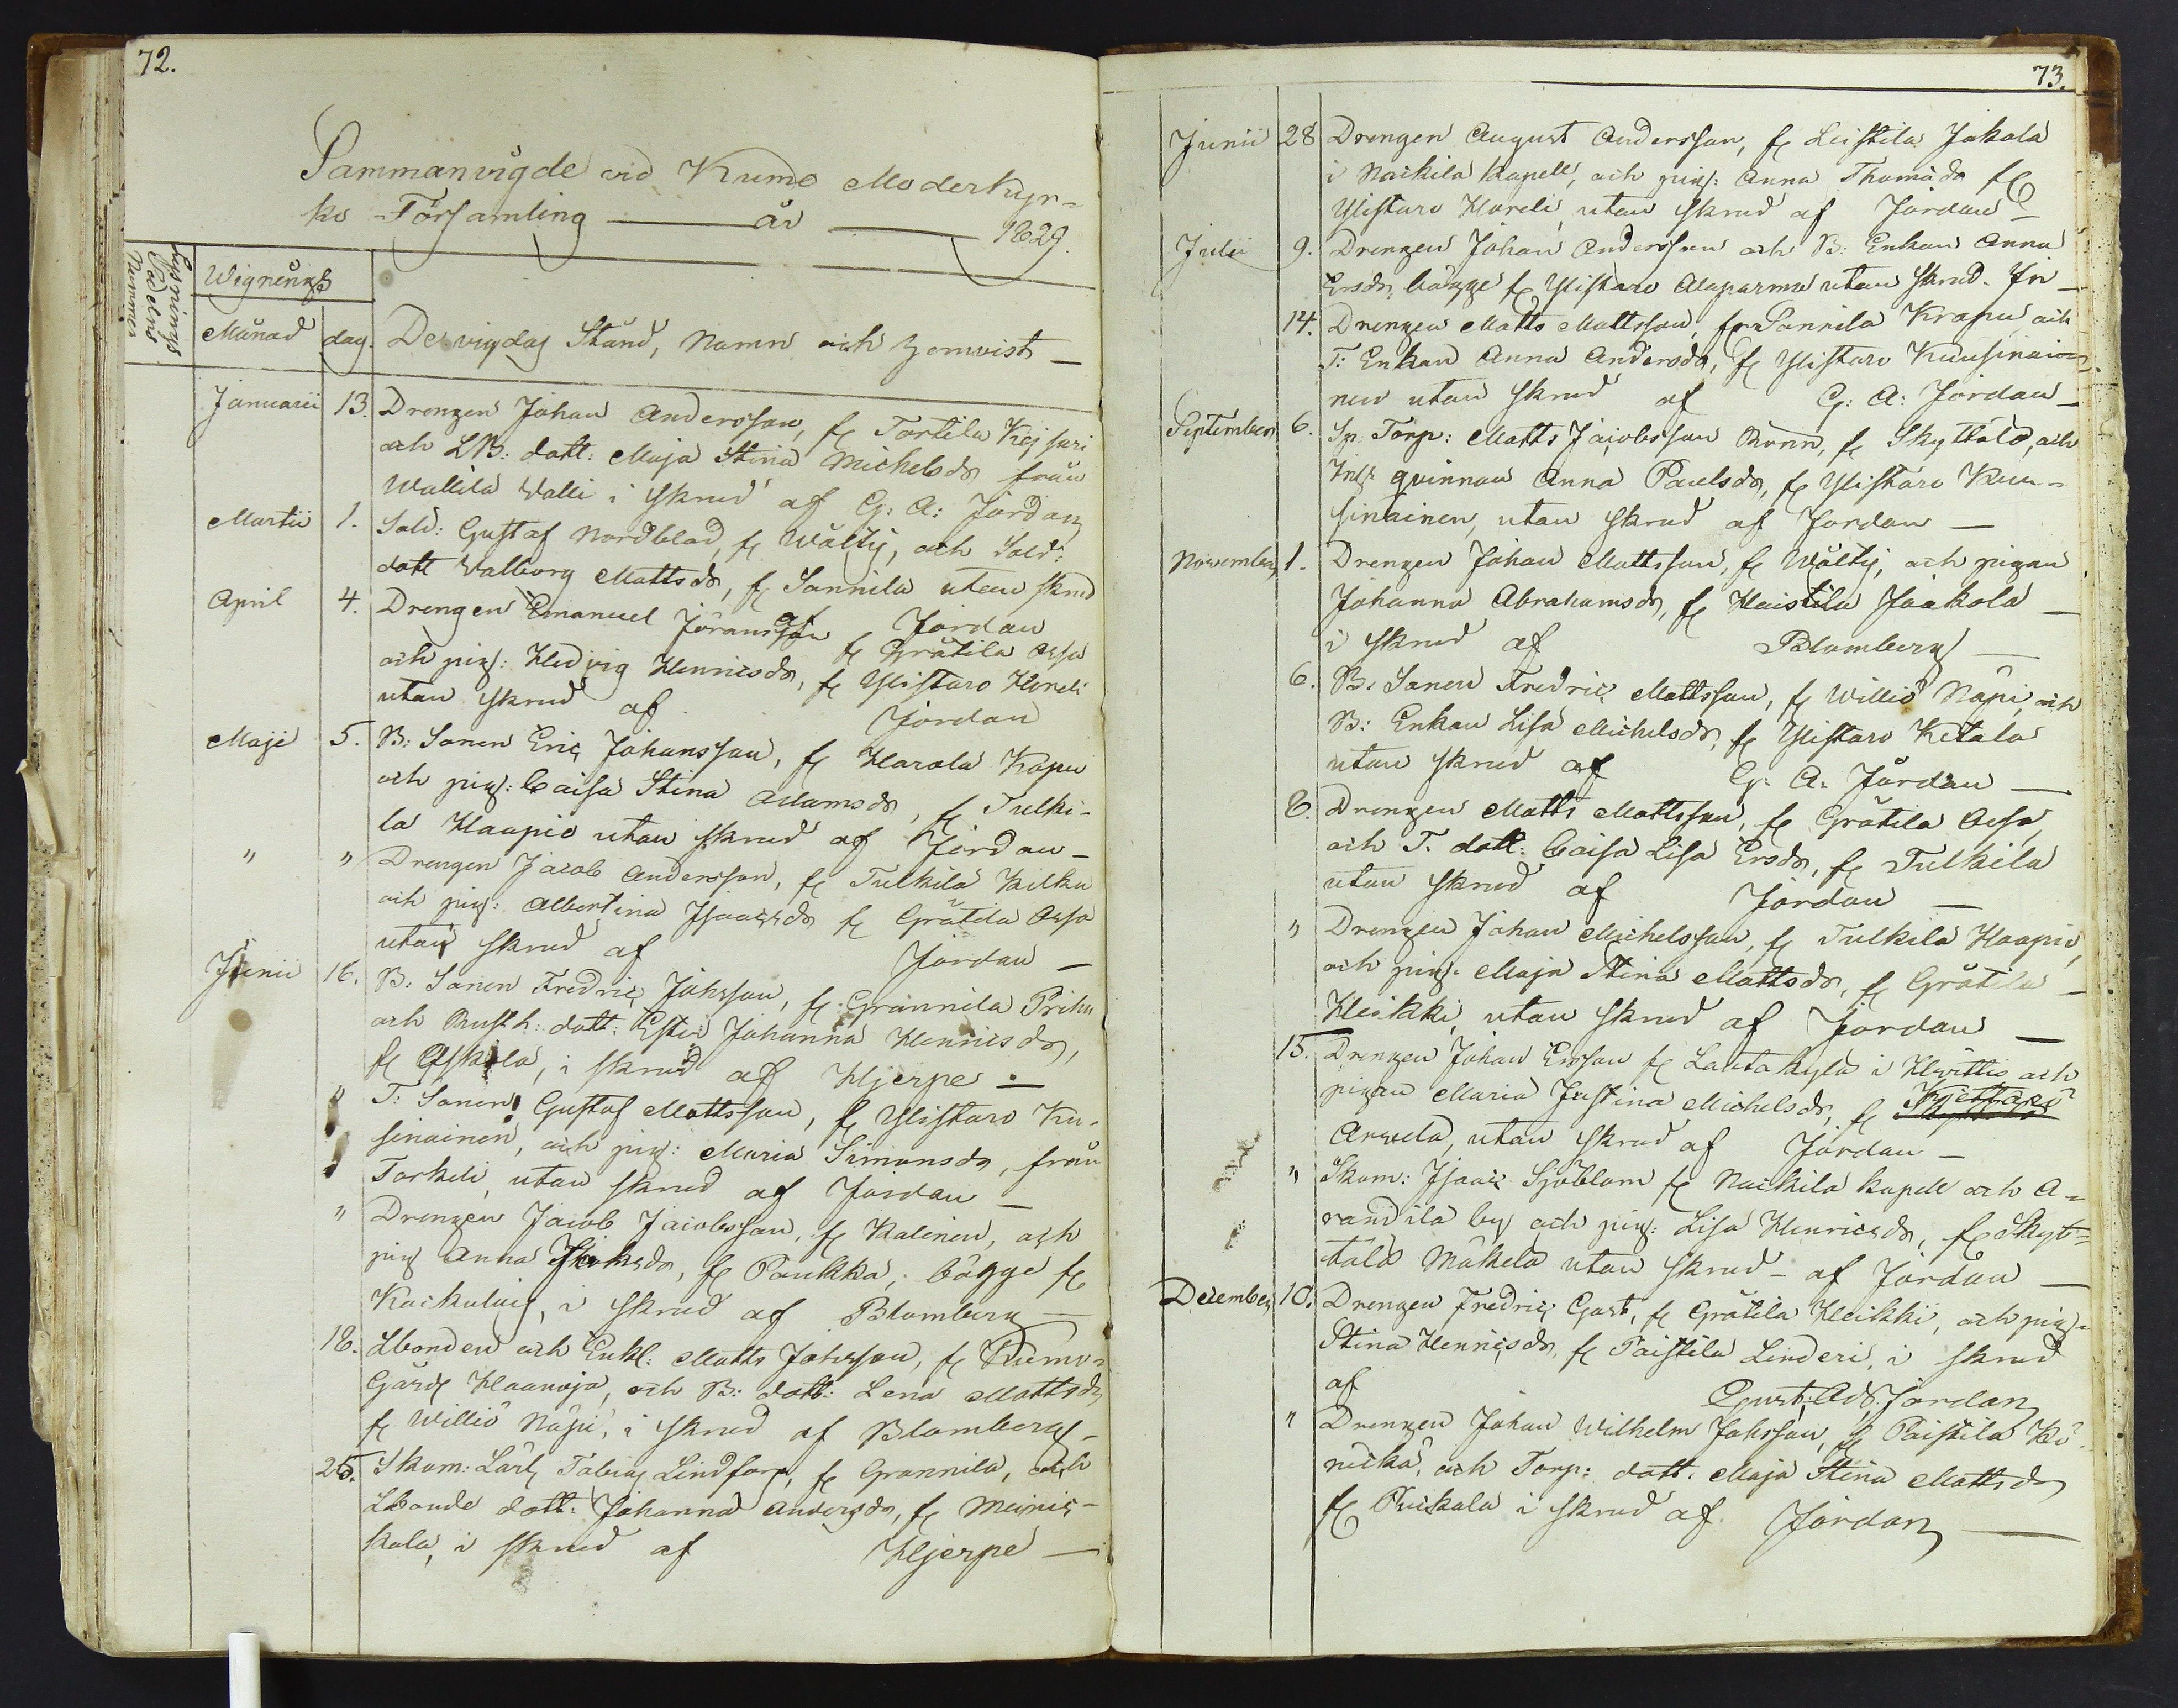 72.
Sammanvigde vid Kumo Moderkyr-
ko Församling år 1829.
Lysnings Sedelns Nummer
Wignings
Månad dag. De vigdas Stånd, Namn och hemvist
Januarii 13. Drengen Johan Andersson, fr Tortila Kejsari
och LB: dott: Maja Stina Michelsdr från
Wallila Walli i skrud af G: A: Jordan
Martii 1. Sold: Gustaf Nordblad, fr Wälty, och Sold:
dott Walborg Mattsdr, fr Sonnila utan skrud
af Jordan
April 4. Drengen Emanuel Göransson fr Gråtila Ossa
och pig: Hedvig Henricsdr, fr Ylistaro Horeli
utan skrud af Jordan
Maji 5. B: Sonen Eric Johansson, fr Harola Kopu
och pig: Caisa Stina Adamsdr, fr Tulki-
la Haapio utan skrud af Jordan
" " Drengen Jacob Andersson, fr Tulkila Kilku
och pig: Albertina Isaacsdr fr Gråtila Ossa
utan skrud af Jordan
Junii 16. B: Sonen Fredric Johsson, fr Grannila Prihu
och Rusth: dott: Ester Johanna Henricsdr,
fr Askola, i skrud af Hjerpe
" T: Sonen Gustaf Mattsson, fr Ylistaro Ku-
sinainen, och pig: Maria Simonsdr, från
Torkeli, utan skrud af Jordan
" Drengen Jacob Jacobsson, fr Kalinen, och
pig Anna Johsdr, fr Paukka, bägge fr
Kaukulaig, i skrud af Blomberg
18. Lbonden och Enkl: Matts Johsson, fr Kumo-
Gårds Haanoja, och B: dott: Lena Mattsdr
fr Willio Näpi, i skrud af Blomberg
25. Skom: Lärl Tobias Lindfors, fr Grannila, och
Lbonde dott: Johanna Andersdr, fr Meinic-
kala, i skrud af Hjerpe
73.
Junii 28 Drengen August Andersson, fr Leistila Jakola
i Naikila Kapell, och pig: Anna Thomädr fr
Ylistaro Horeli utan skrud af Jordan
Julii 9. Drengen Johan Andersson och B: Enkan Anna
Ersdr, bägge fr Ylistaro Alaparma utan skrud. Jn
14. Drengen Matts Mattsson, från Sonnila Krapu och
T: Enkan Anna Andersdr, fr Ylistaro Kuusinai-
nen utan skrud af G: A: Jordan
September 6. Sp: Torp: Matts Jacobsson Runn, fr Skyttälä, och
Inhs qvinnan Anna Paulsdr, fr Ylistaro Kuu-
sinainen, utan skrud af Jordan
November 1. Drengen Johan Mattsson, fr Wälty, och pigan
Johanna Abrahamsdr, fr Haistila Jaakola
i skrud af Blomberg
6. B: Sonen Fredric Mattsson, fr Willio Näpi, och
B: Enkan Lisa Michelsdr, fr Ylistaro Ketala
utan skrud af G: A: Jordan
8. Drengen Matts Mattsson, fr Gråtila Ossa,
och T. dott: Caisa Lisa Ersdr, fr Tulkila
utan skrud af Jordan
" Drengen Johan Michelsson, fr Tulkila Haapio,
och pig: Maja Stina Mattsdr, fr Gråtila
Heikki, utan skrud af Jordan
15. Drengen Johan Ersson fr Lautakylä i Hvittis och
pigan Maria Justina Michelsdr, fr
Arvela, utan skrud af Jordan
" Skom: Isaac Sjöblom fr Naikila Kapell och A-
randila by och pig: Lisa Henricsdr, fr Skyt-
tälä Mäkelä utan skrud af Jordan
December 10. Drengen Fredric Gust, fr Gråtila Heikki, och pig
Stina Henricsdr, fr Paistila Linderi, i skrud
af Gust: Ad: Jordan
" Drengen Johan Wilhelm Johsson, fr Paistila Kö-
nickä, och Torp: dott. Maja Stina Mattsdr
fr Kuikala i skrud af Jordan